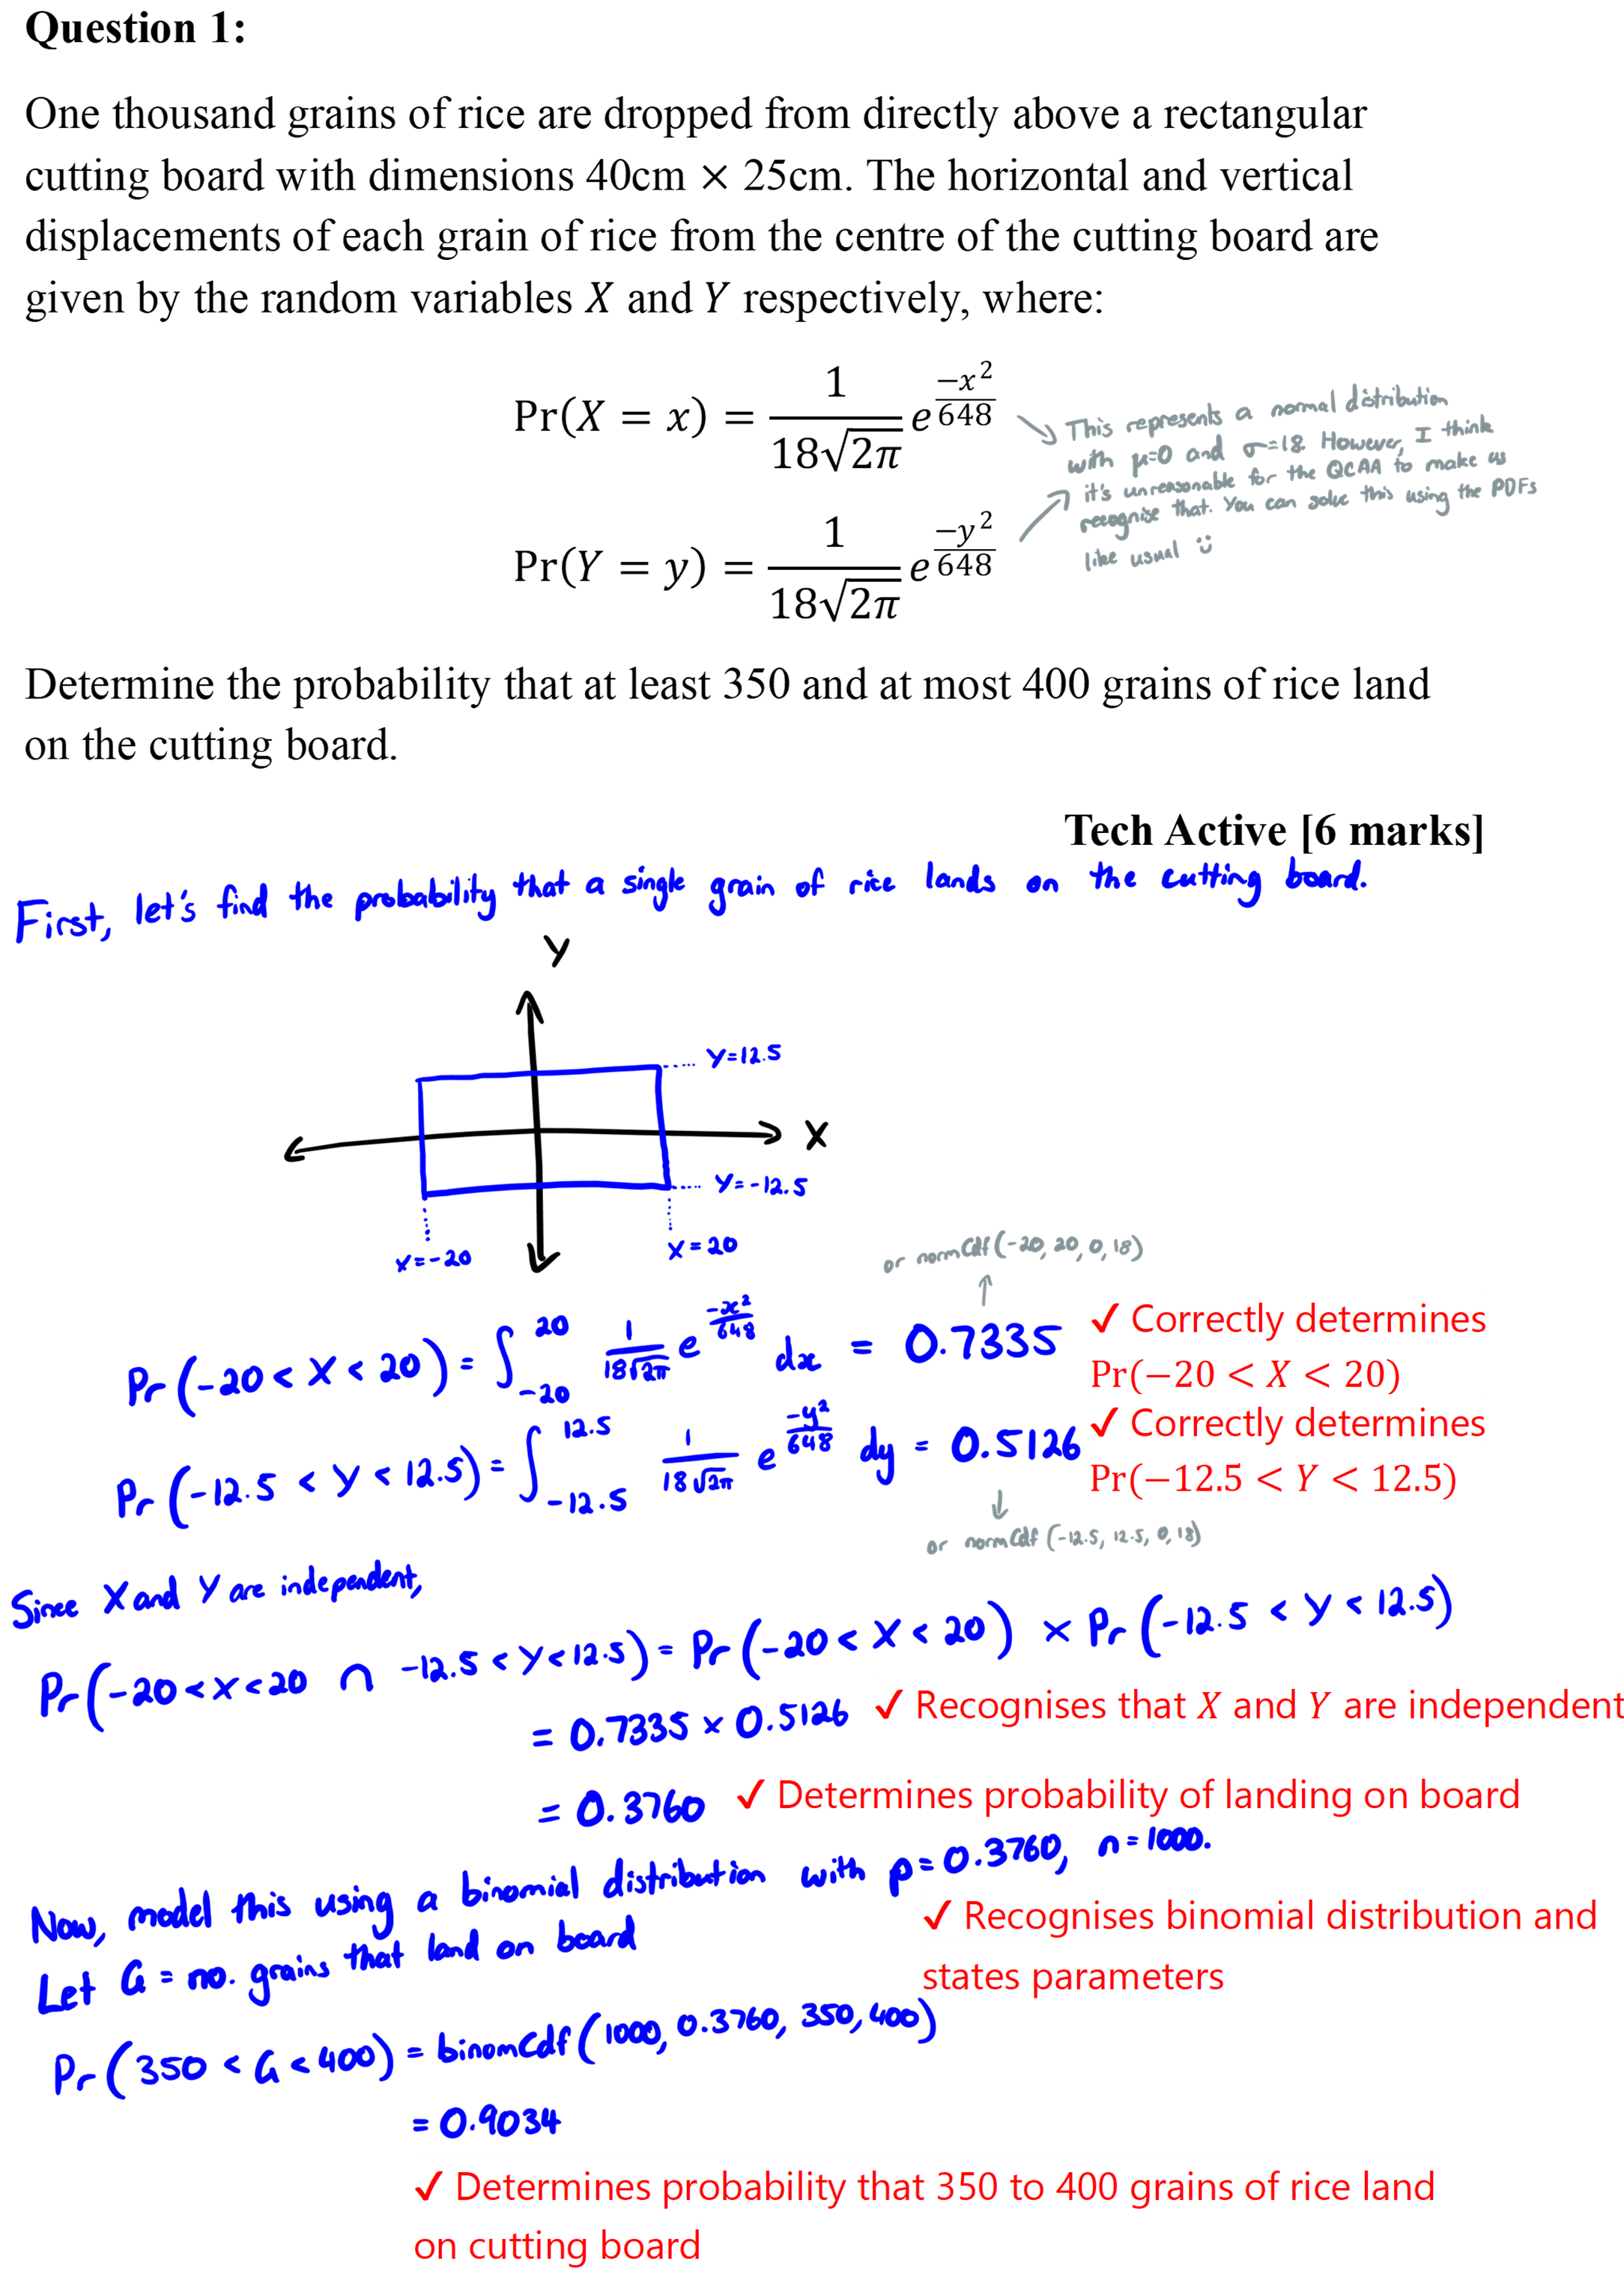 Question 1:
One thousand grains of rice are dropped from directly above a rectangular
cutting board with dimensions 40cm × 25cm. The horizontal and vertical
displacements of each grain of rice from the centre of the cutting board are
given by the random variables X and Y respectively, where:
Pr(X = x) = 1/(18√(2π)) e^(−x²/648)
Pr(Y = y) = 1/(18√(2π)) e^(−y²/648)
This represents a normal distribution
with μ=0 and σ=18. However, I think
it's unreasonable for the QCAA to make us
recognise that. You can solve this using the PDFs
like usual :)
Determine the probability that at least 350 and at most 400 grains of rice land
on the cutting board.
Tech Active [6 marks]
First, let's find the probability that a single grain of rice lands on the cutting board.
Y
Y=12.5
X
Y=-12.5
X=-20
X=20
or normCdf(-20, 20, 0, 18)
Pr(-20 < X < 20) = ∫_{-20}^{20} 1/(18√(2π)) e^(-x²/648) dx = 0.7335
✓ Correctly determines
Pr(−20 < X < 20)
Pr(-12.5 < Y < 12.5) = ∫_{-12.5}^{12.5} 1/(18√(2π)) e^(-y²/648) dy = 0.5126
✓ Correctly determines
Pr(−12.5 < Y < 12.5)
or normCdf(-12.5, 12.5, 0, 18)
Since X and Y are independent,
Pr(-20 < X < 20 ∩ -12.5 < Y < 12.5) = Pr(-20 < X < 20) × Pr(-12.5 < Y < 12.5)
= 0.7335 × 0.5126 ✓ Recognises that X and Y are independent
= 0.3760 ✓ Determines probability of landing on board
Now, model this using a binomial distribution with p=0.3760, n=1000.
✓ Recognises binomial distribution and
states parameters
Let G = no. grains that land on board
Pr(350 < G < 400) = binomCdf(1000, 0.3760, 350, 400)
= 0.9034
✓ Determines probability that 350 to 400 grains of rice land
on cutting board